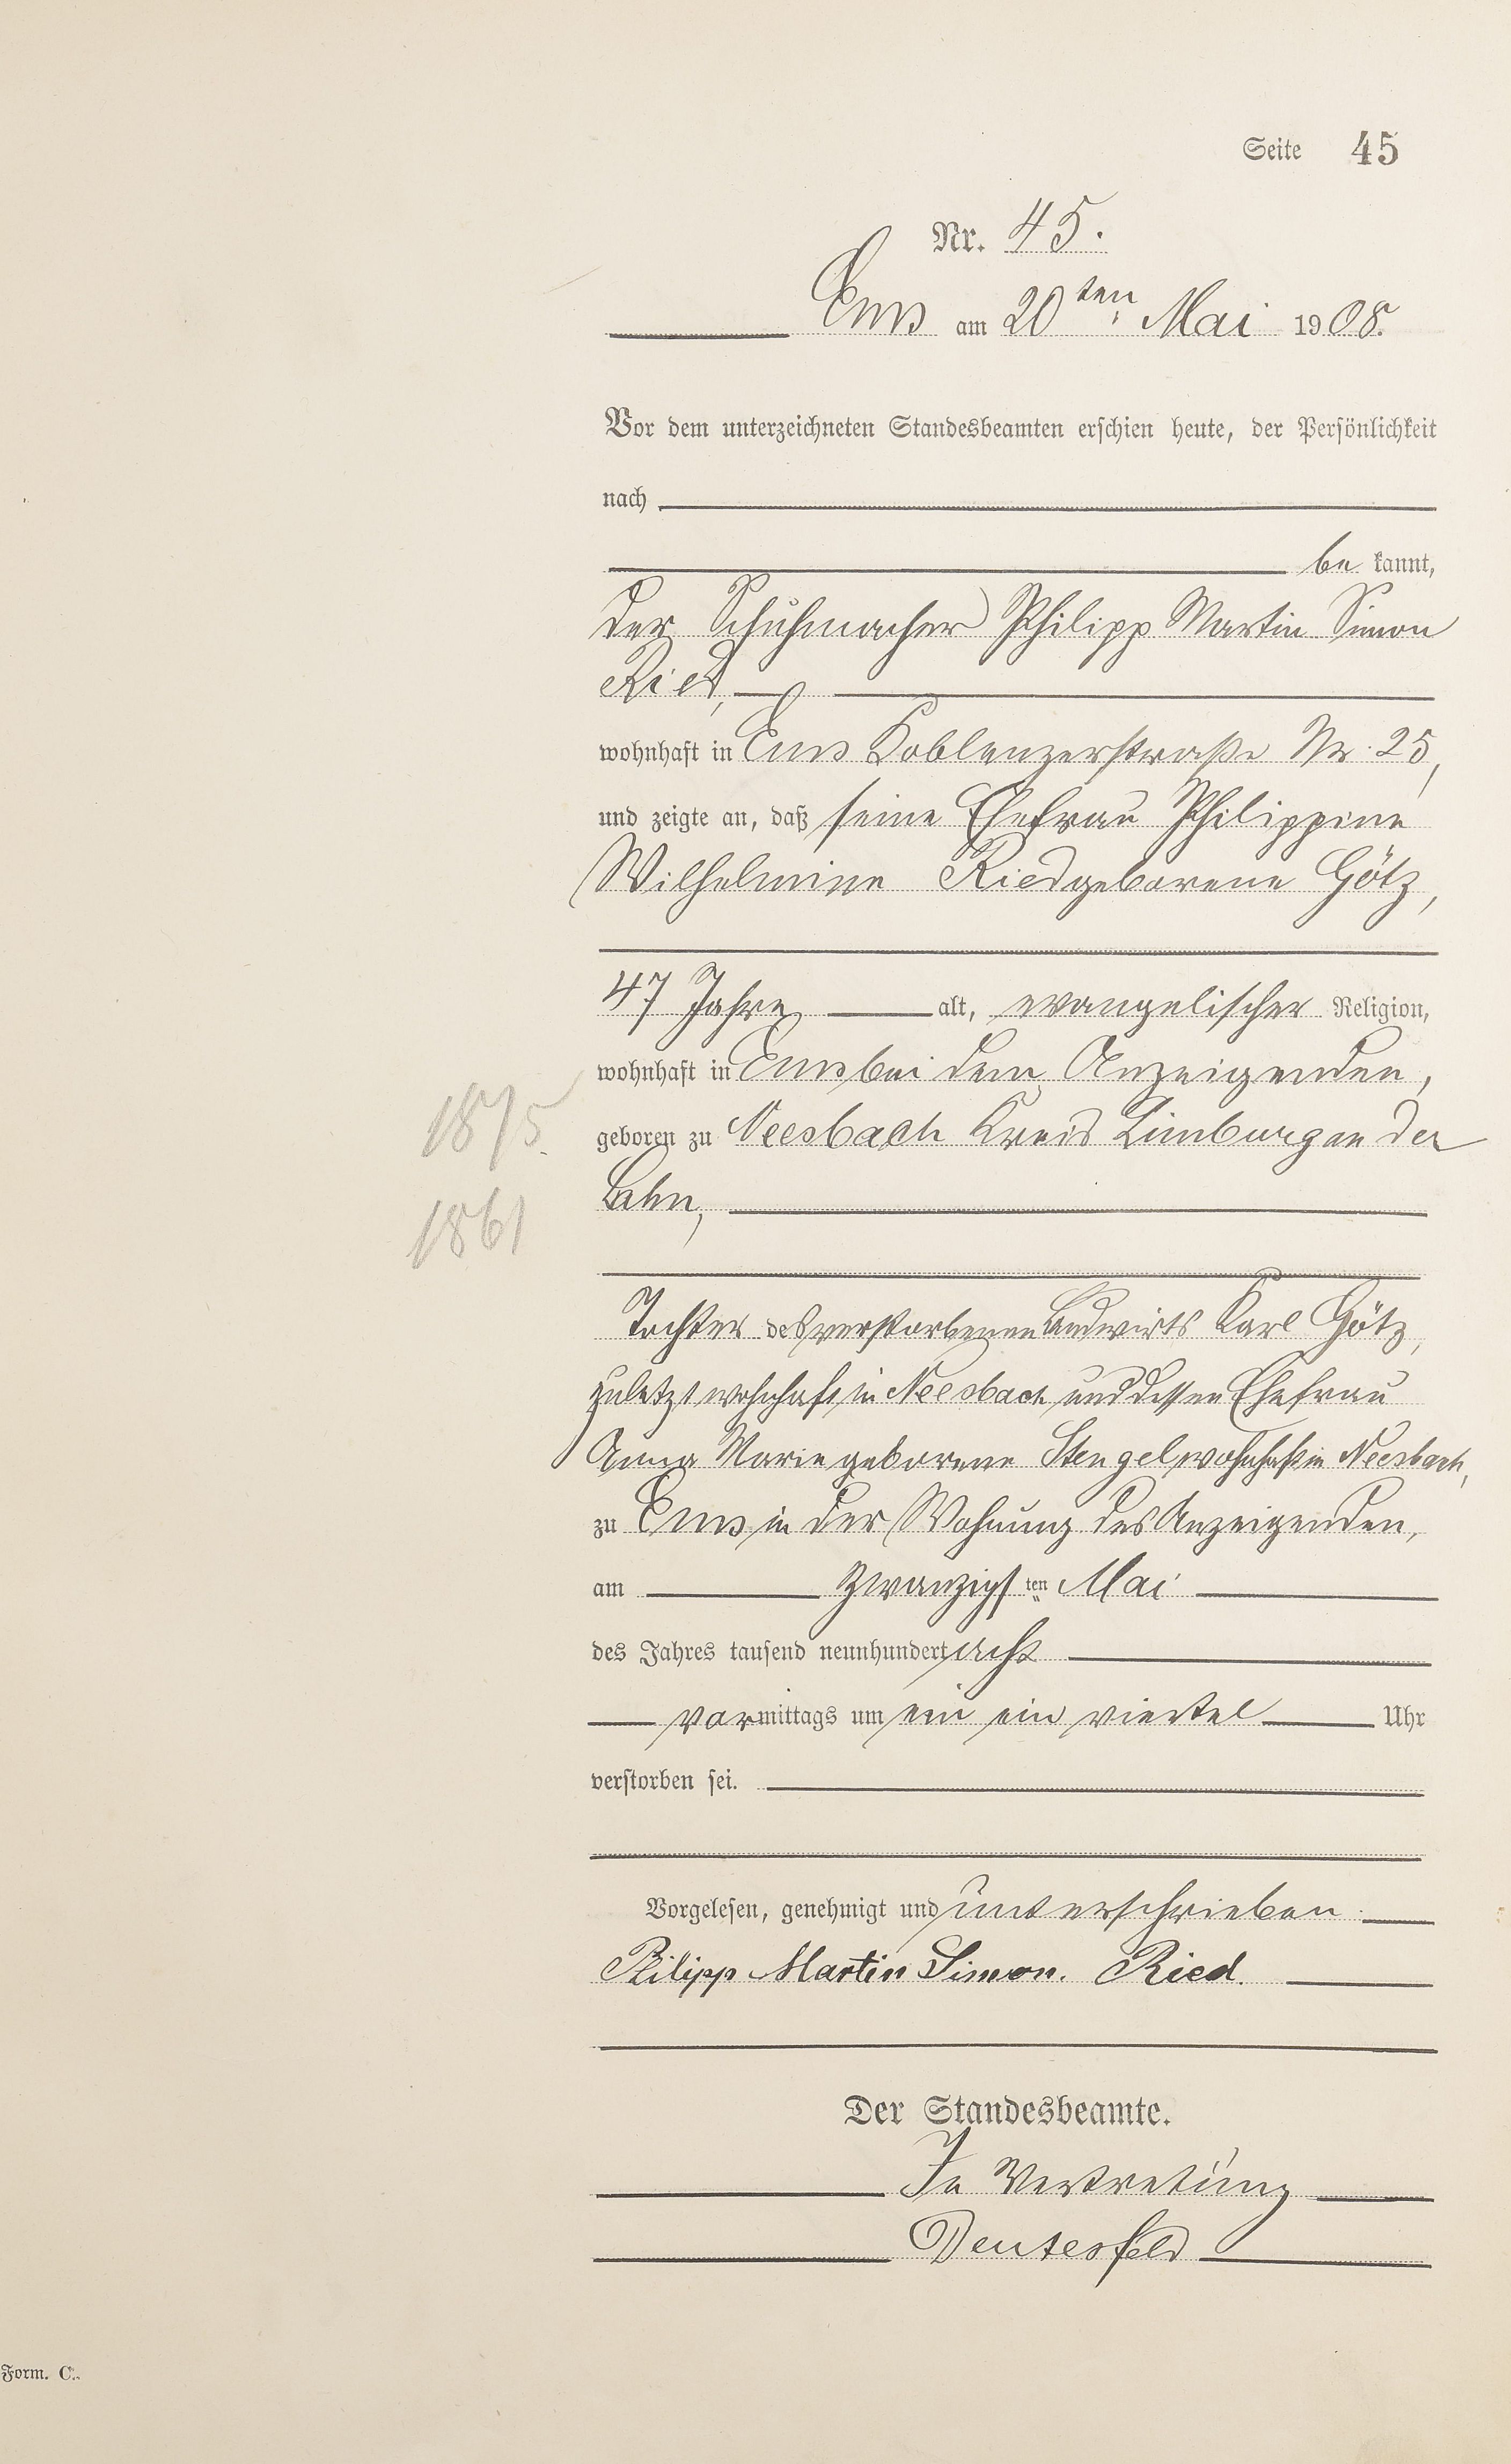 Seite 45
Nr. 45.
Ems am 20ten Mai 1908.
Vor dem unterzeichneten Standesbeamten erschien heute, der Persönlichkeit
nach
be kannt,
der Schuhmacher Philipp Martin Simon
Ried,
wohnhaft in Ems Koblenzerstraße Nr. 25,
und zeigte an, daß seine Ehefrau Philippine
Wilhelmine Ried geborene Götz,
47 Jahre alt, evangelischer Religion,
wohnhaft in Ems bei dem Anzeigenden,
1875
geboren zu Neesbach Kreis Limburg an der
Lahn,
1861
Tochter des verstorbenen Landwirts Karl Götz,
zuletzt wohnhaft in Neesbach und dessen Ehefrau
Anna Marie geborene Stengel, wohnhaft in Neesbach,
zu Ems in der Wohnung des Anzeigenden,
am zwanzigsten Mai
des Jahres tausend neunhundert acht
vormittags um ein ein viertel Uhr
verstorben sei.
Vorgelesen, genehmigt und unterschrieben
Philipp Martin Simon. Ried.
Der Standesbeamte.
In Vertretung
Form. C.